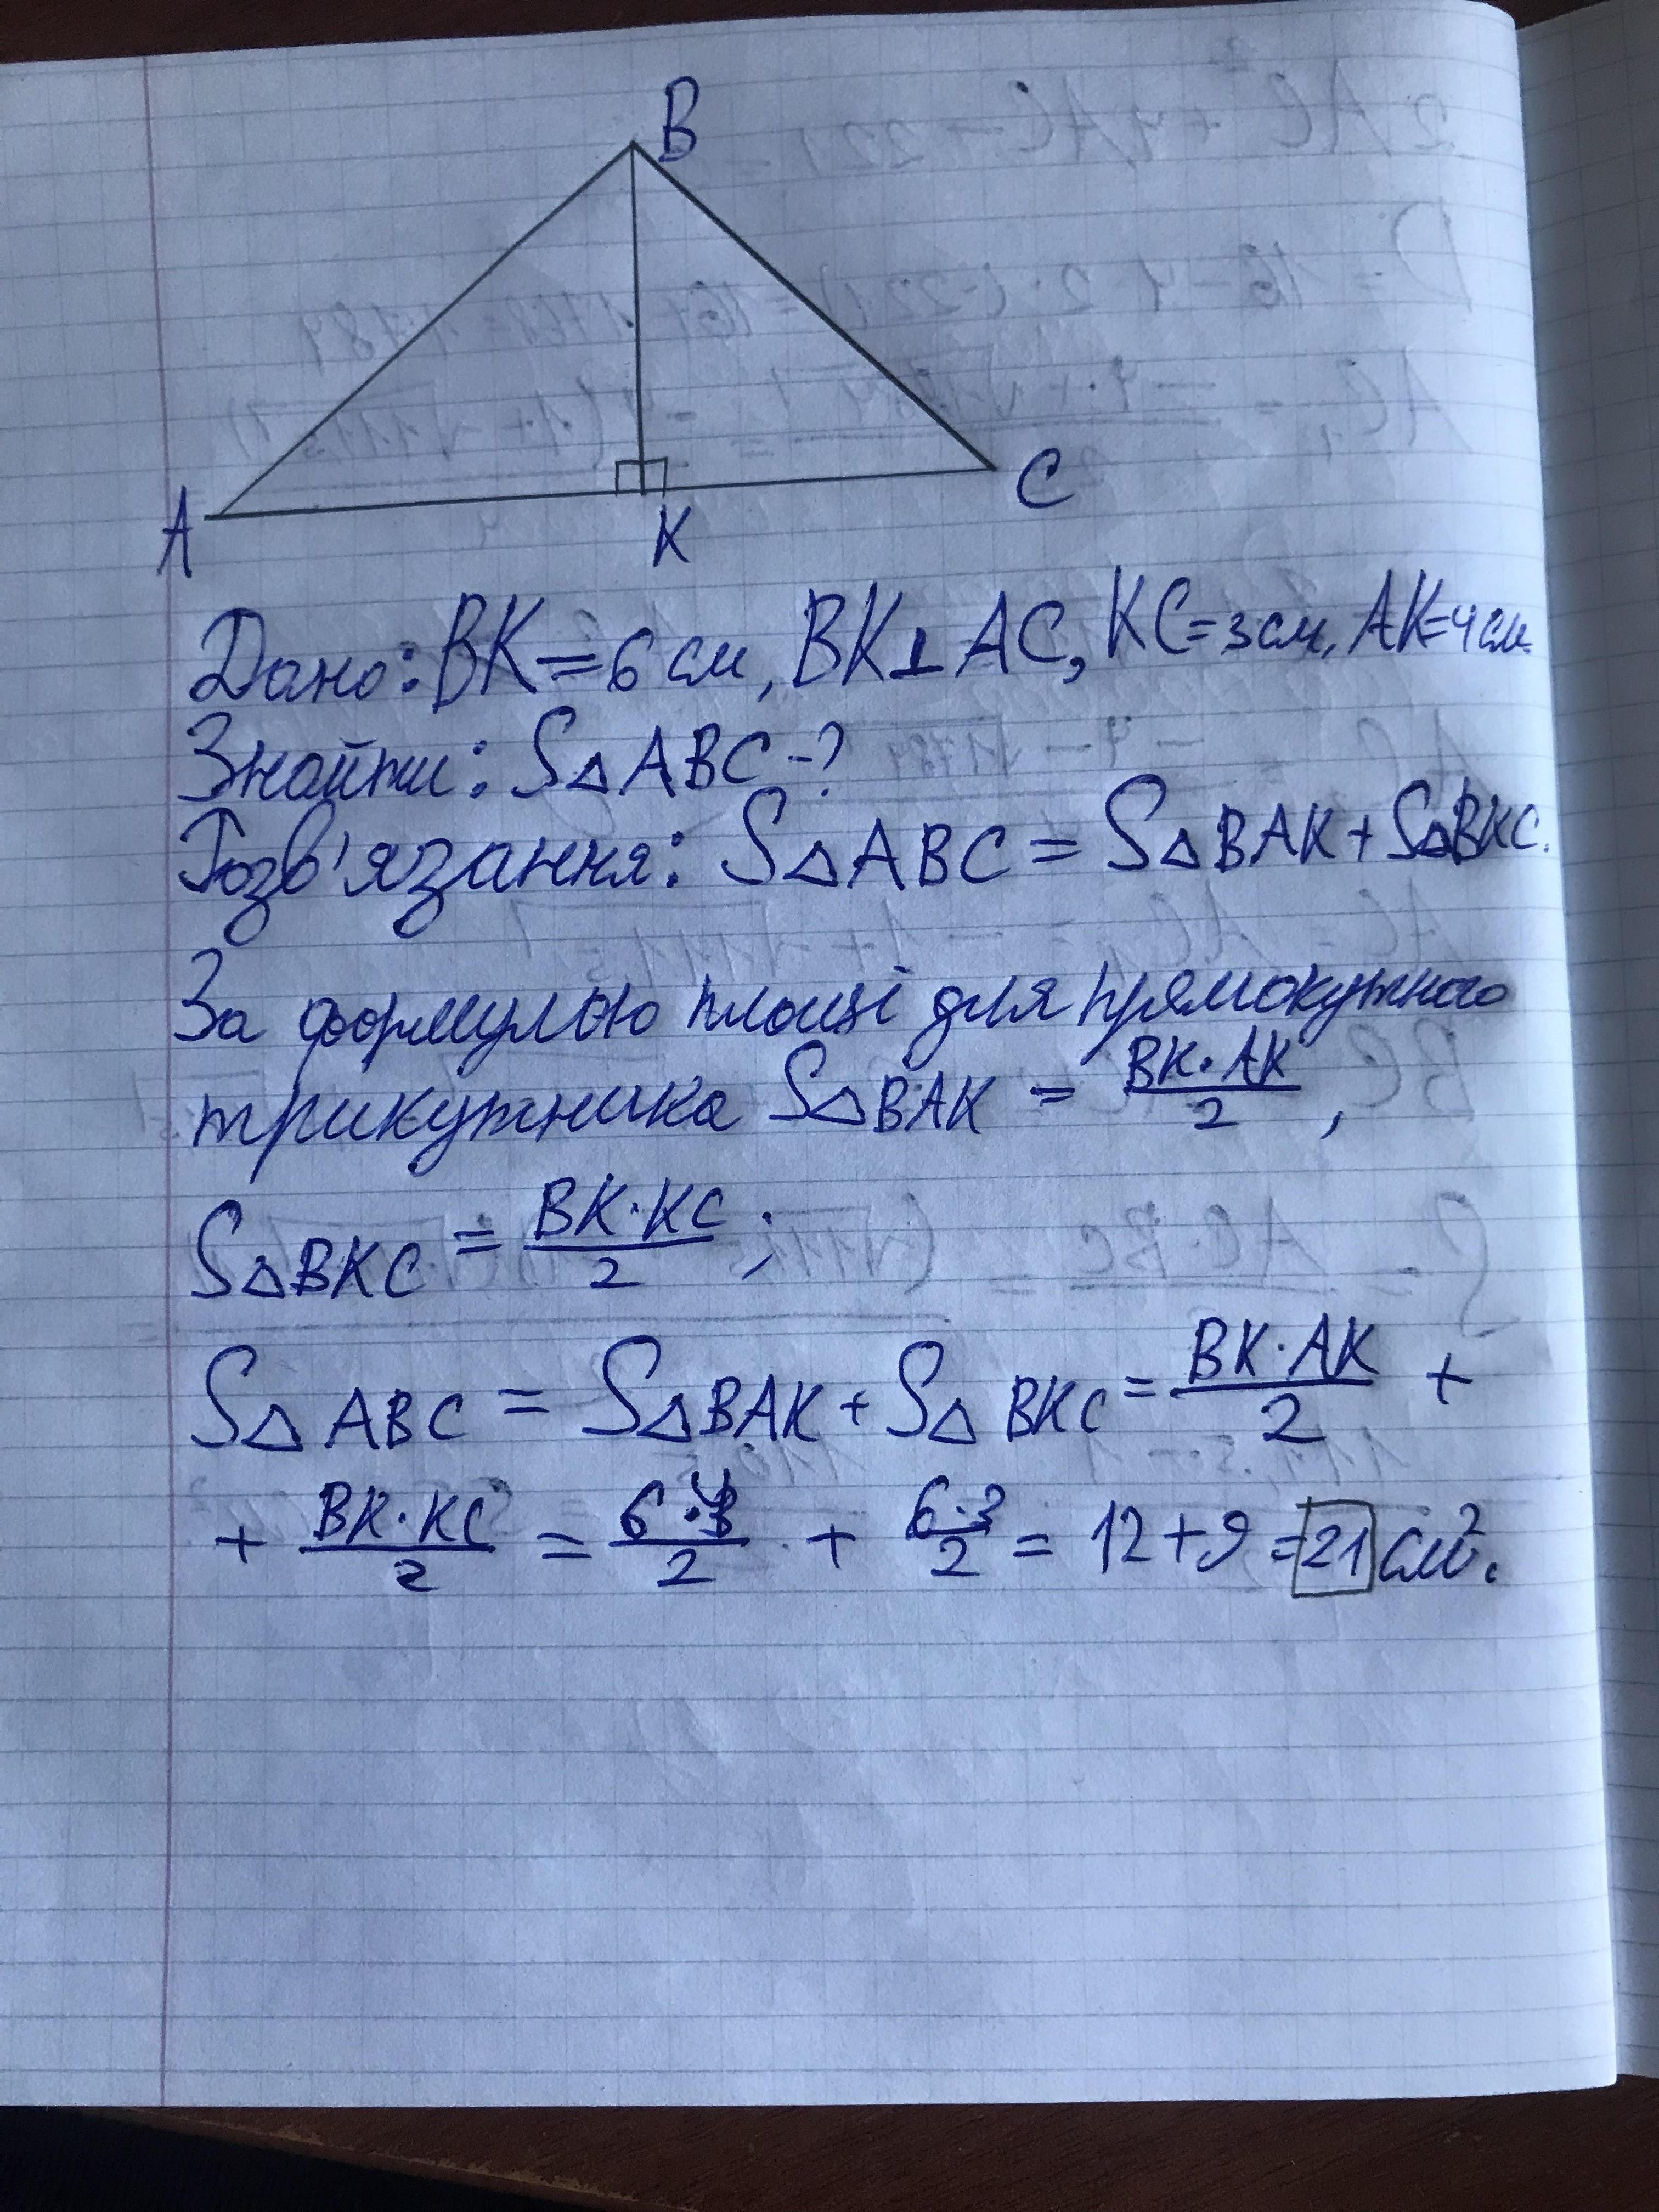 B
A
K
C
Дано: BK = 6 см, BK ⊥ AC, KC = 3 см, AK = 4 см.
Знайти: S△ABC - ?
Розв'язання: S△ABC = S△BAK + S△BKC.
За формулою площі для прямокутного
трикутника S△BAK = BK·AK/2,
S△BKC = BK·KC/2;
S△ABC = S△BAK + S△BKC = BK·AK/2 +
+ BK·KC/2 = 6·4/2 + 6·3/2 = 12 + 9 = 21 см².